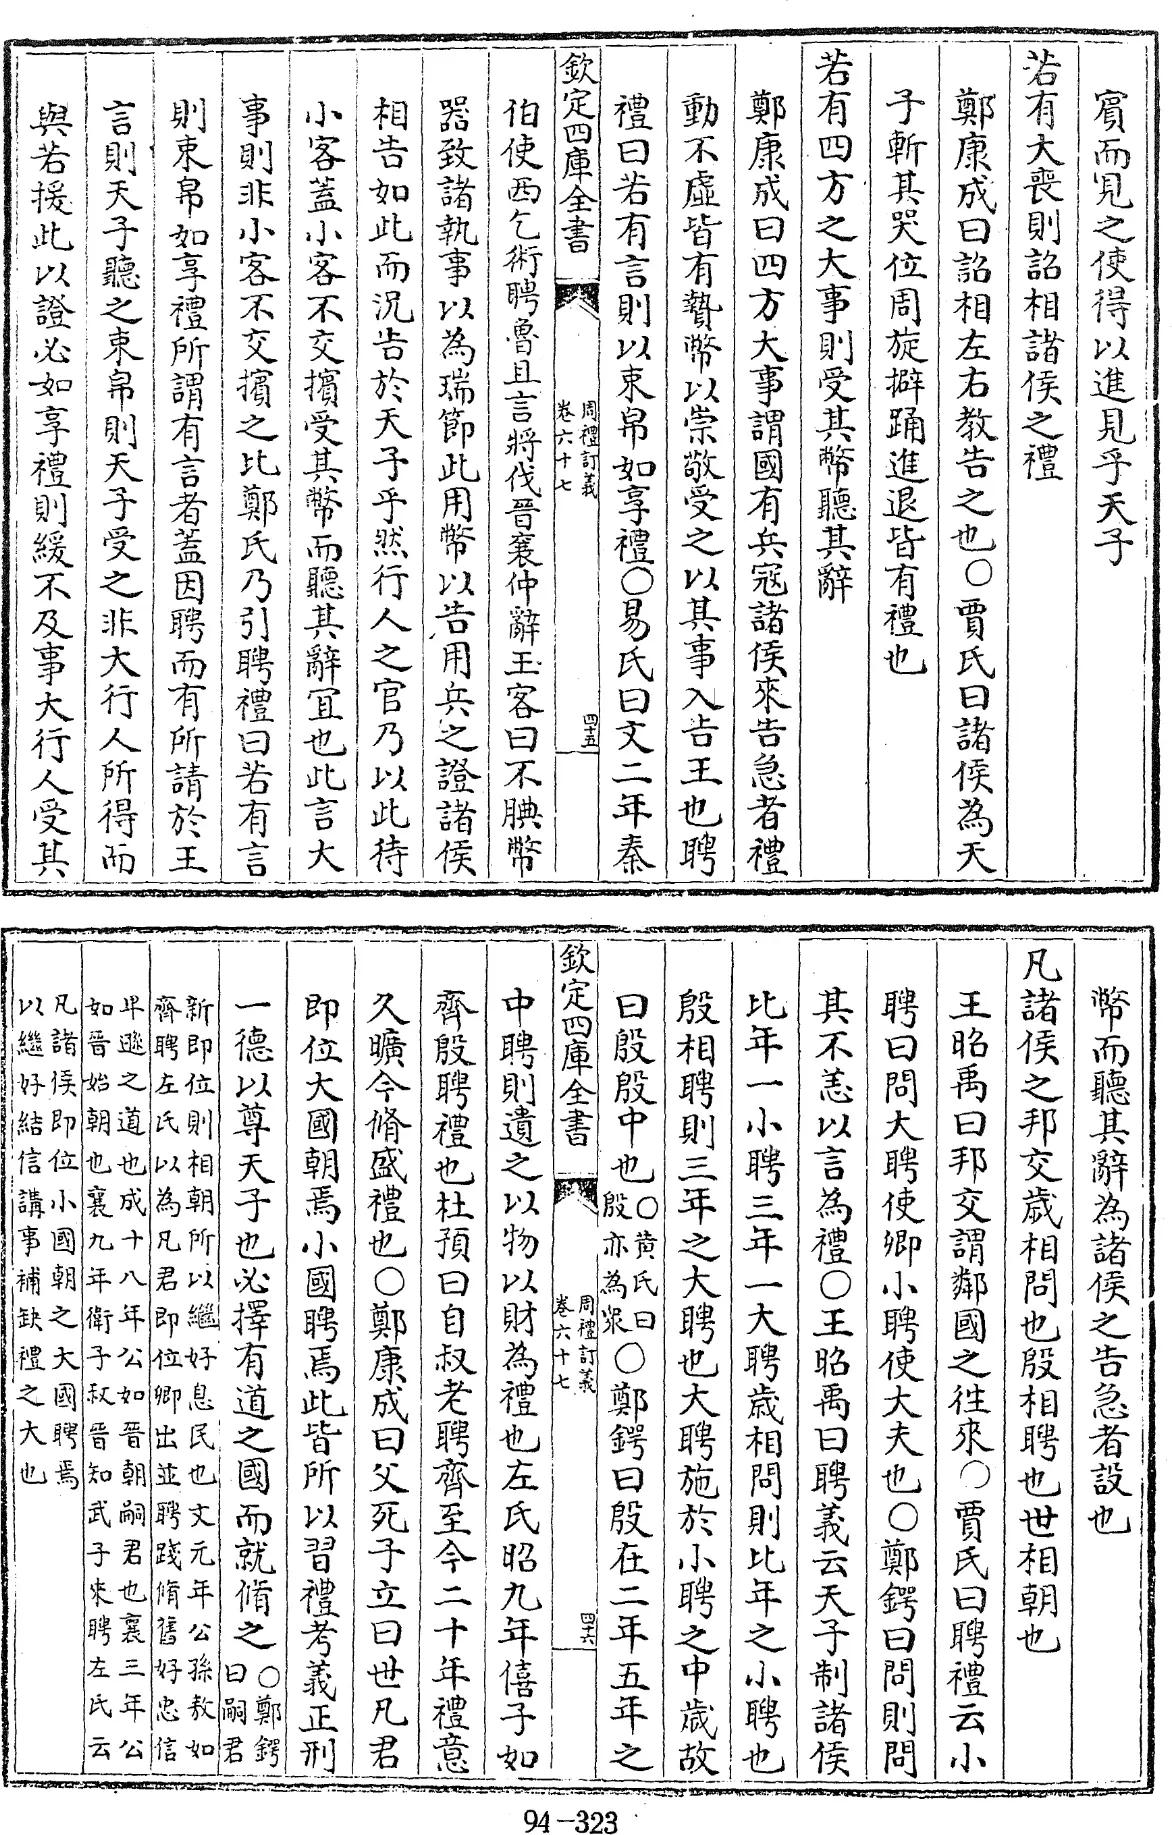 賔而見之使得以進見乎天子
若有大喪則詔相諸侯之禮
鄭康成曰詔相左右教告之也〇賈氏曰諸侯為天
子斬其哭位周旋擗踊進退皆有禮也
若有四方之大事則受其幣聽其辭
鄭康成曰四方大事謂國有兵寇諸侯來告急者禮
動不虛皆有贄幣以崇敬受之以其事入告王也聘
禮曰若有言則以束帛如享禮〇易氏曰文二年秦
欽定四庫全書
周禮訂義
卷六十七
四十五
伯使西乞術聘魯且言將伐晉襄仲辭玉客曰不腆幣
器致諸執事以為瑞節此用幣以告用兵之證諸侯
相告如此而況告於天子乎然行人之官乃以此待
小客蓋小客不交擯受其幣而聽其辭宜也此言大
事則非小客不交擯之比鄭氏乃引聘禮曰若有言
則束帛如享禮所謂有言者蓋因聘而有所請於王
言則天子聽之束帛則天子受之非大行人所得而
與若援此以證必如享禮則緩不及事大行人受其
幣而聽其辭為諸侯之告急者設也
凡諸侯之邦交歲相問也殷相聘也世相朝也
王昭禹曰邦交謂鄰國之往來〇賈氏曰聘禮云小
聘曰問大聘使卿小聘使大夫也〇鄭鍔曰問則問
其不恙以言為禮〇王昭禹曰聘義云天子制諸侯
比年一小聘三年一大聘歲相問則比年之小聘也
殷相聘則三年之大聘也大聘施於小聘之中歲故
曰殷殷中也〇黃氏曰殷亦為衆〇鄭鍔曰殷在二年五年之
欽定四庫全書
周禮訂義
卷六十七
四十六
中聘則遺之以物以財為禮也左氏昭九年僖子如
齊殷聘禮也杜預曰自叔老聘齊至今二十年禮意
久曠今脩盛禮也〇鄭康成曰父死子立曰世凡君
即位大國朝焉小國聘焉此皆所以習禮考義正刑
一德以尊天子也必擇有道之國而就脩之〇鄭鍔曰嗣君
新即位則相朝所以繼好息民也文元年公孫敖如
齊聘左氏以為凡君即位卿出並聘踐脩舊好忠信
卑遜之道也成十八年公如晉朝嗣君也襄三年公
如晉始朝也襄九年衛子叔晉知武子來聘左氏云
凡諸侯即位小國朝之大國聘焉
以繼好結信講事補缺禮之大也
94-323